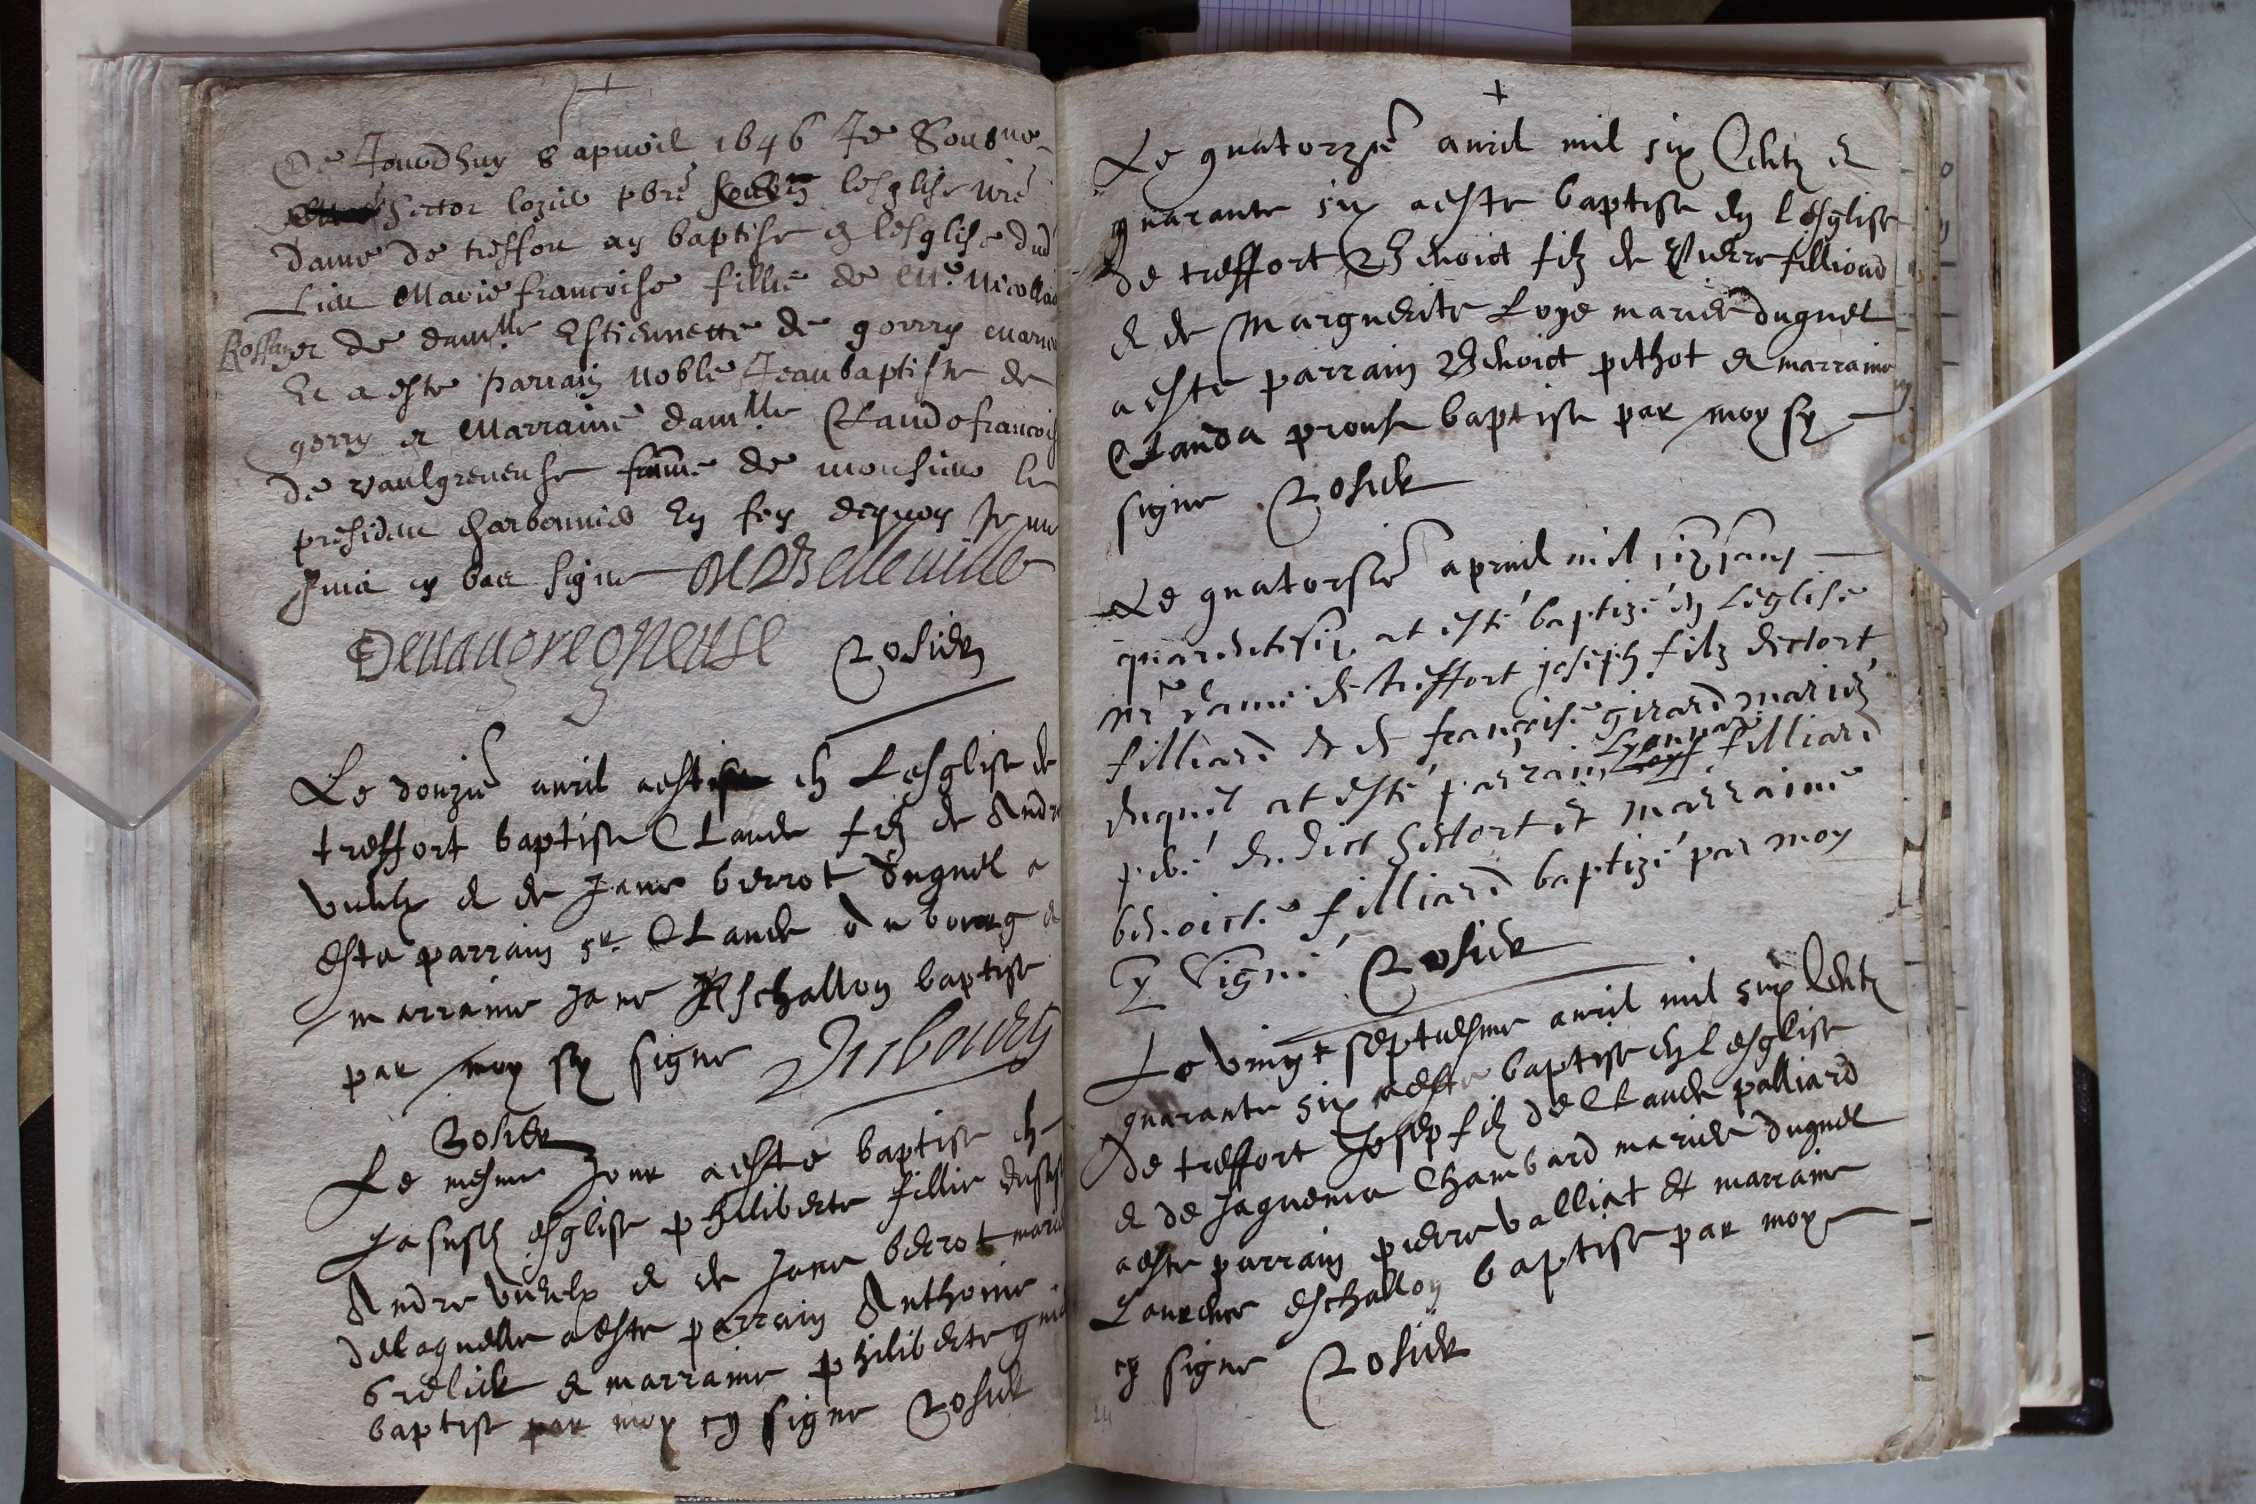 +
Ce Jourdhuy 8 apvril 1646 Je Soubs
hector pbre lesglise nre
dame de treffort ay baptise en lesglise dud
Lieu Marie francoise fillie de Mre Nicollas
Rossan et de damlle Estiennette de gorry maries
Et a este Parrain Noble Jean baptiste de
gorry et Marraine damlle Claude francoise
de vaulgreneuse femme de monsieur le
president charbonnier En foy dequoy Je me
suis cy bas signe M De Belleville
Devaugreneuse Rosier
Le douzie avril aeste en Lesglise de
treffort baptise Claude filz de Andre
vuelz et de Jane berrot duquel a
este parrain sr Claude du bourg et
marraine Jane Eschallon baptise
par moy sy signe Dubourg
Rosier
Le mesme Jour aeste baptise en
La suste esglise philiberte fillie dusus
Andre vuelz et de Jane berrot maries
delaquelle aeste parrain Anthoine
brelier et marraine philiberte
baptise par moy cy signe Rosier
+
Le quatorzie avril mil six Centz et
quarante six aeste baptise en Lesglise
de treffort Benoict filz de Pierre filliond
et de Marguerite Loye maries duquel
aeste parrain Benoict pithot et marraine
Clauda prouse baptise par moy sy
signe Rosier
Le quatorsie apvril mil six sans
quarentesix at esté baptizé en Leglise
nre dame de treffort joseph filz dectort
filliard et de françoise girard mariez
duquel at esté parrain Lyonnard filliard
filz dudict hectort et marraine
benoiste filliard baptizé par moy
Cy Signé Rosier
Le vingt septiesme avril mil six Centz
quarante six aeste baptise en Lesglise
de treffort Josep filz de Claude palliard
et de Jaquema Chambard maries duquel
aeste parrain pierre valliat et marraine
Laurence eschallon baptise par moy
cy signe Rosier